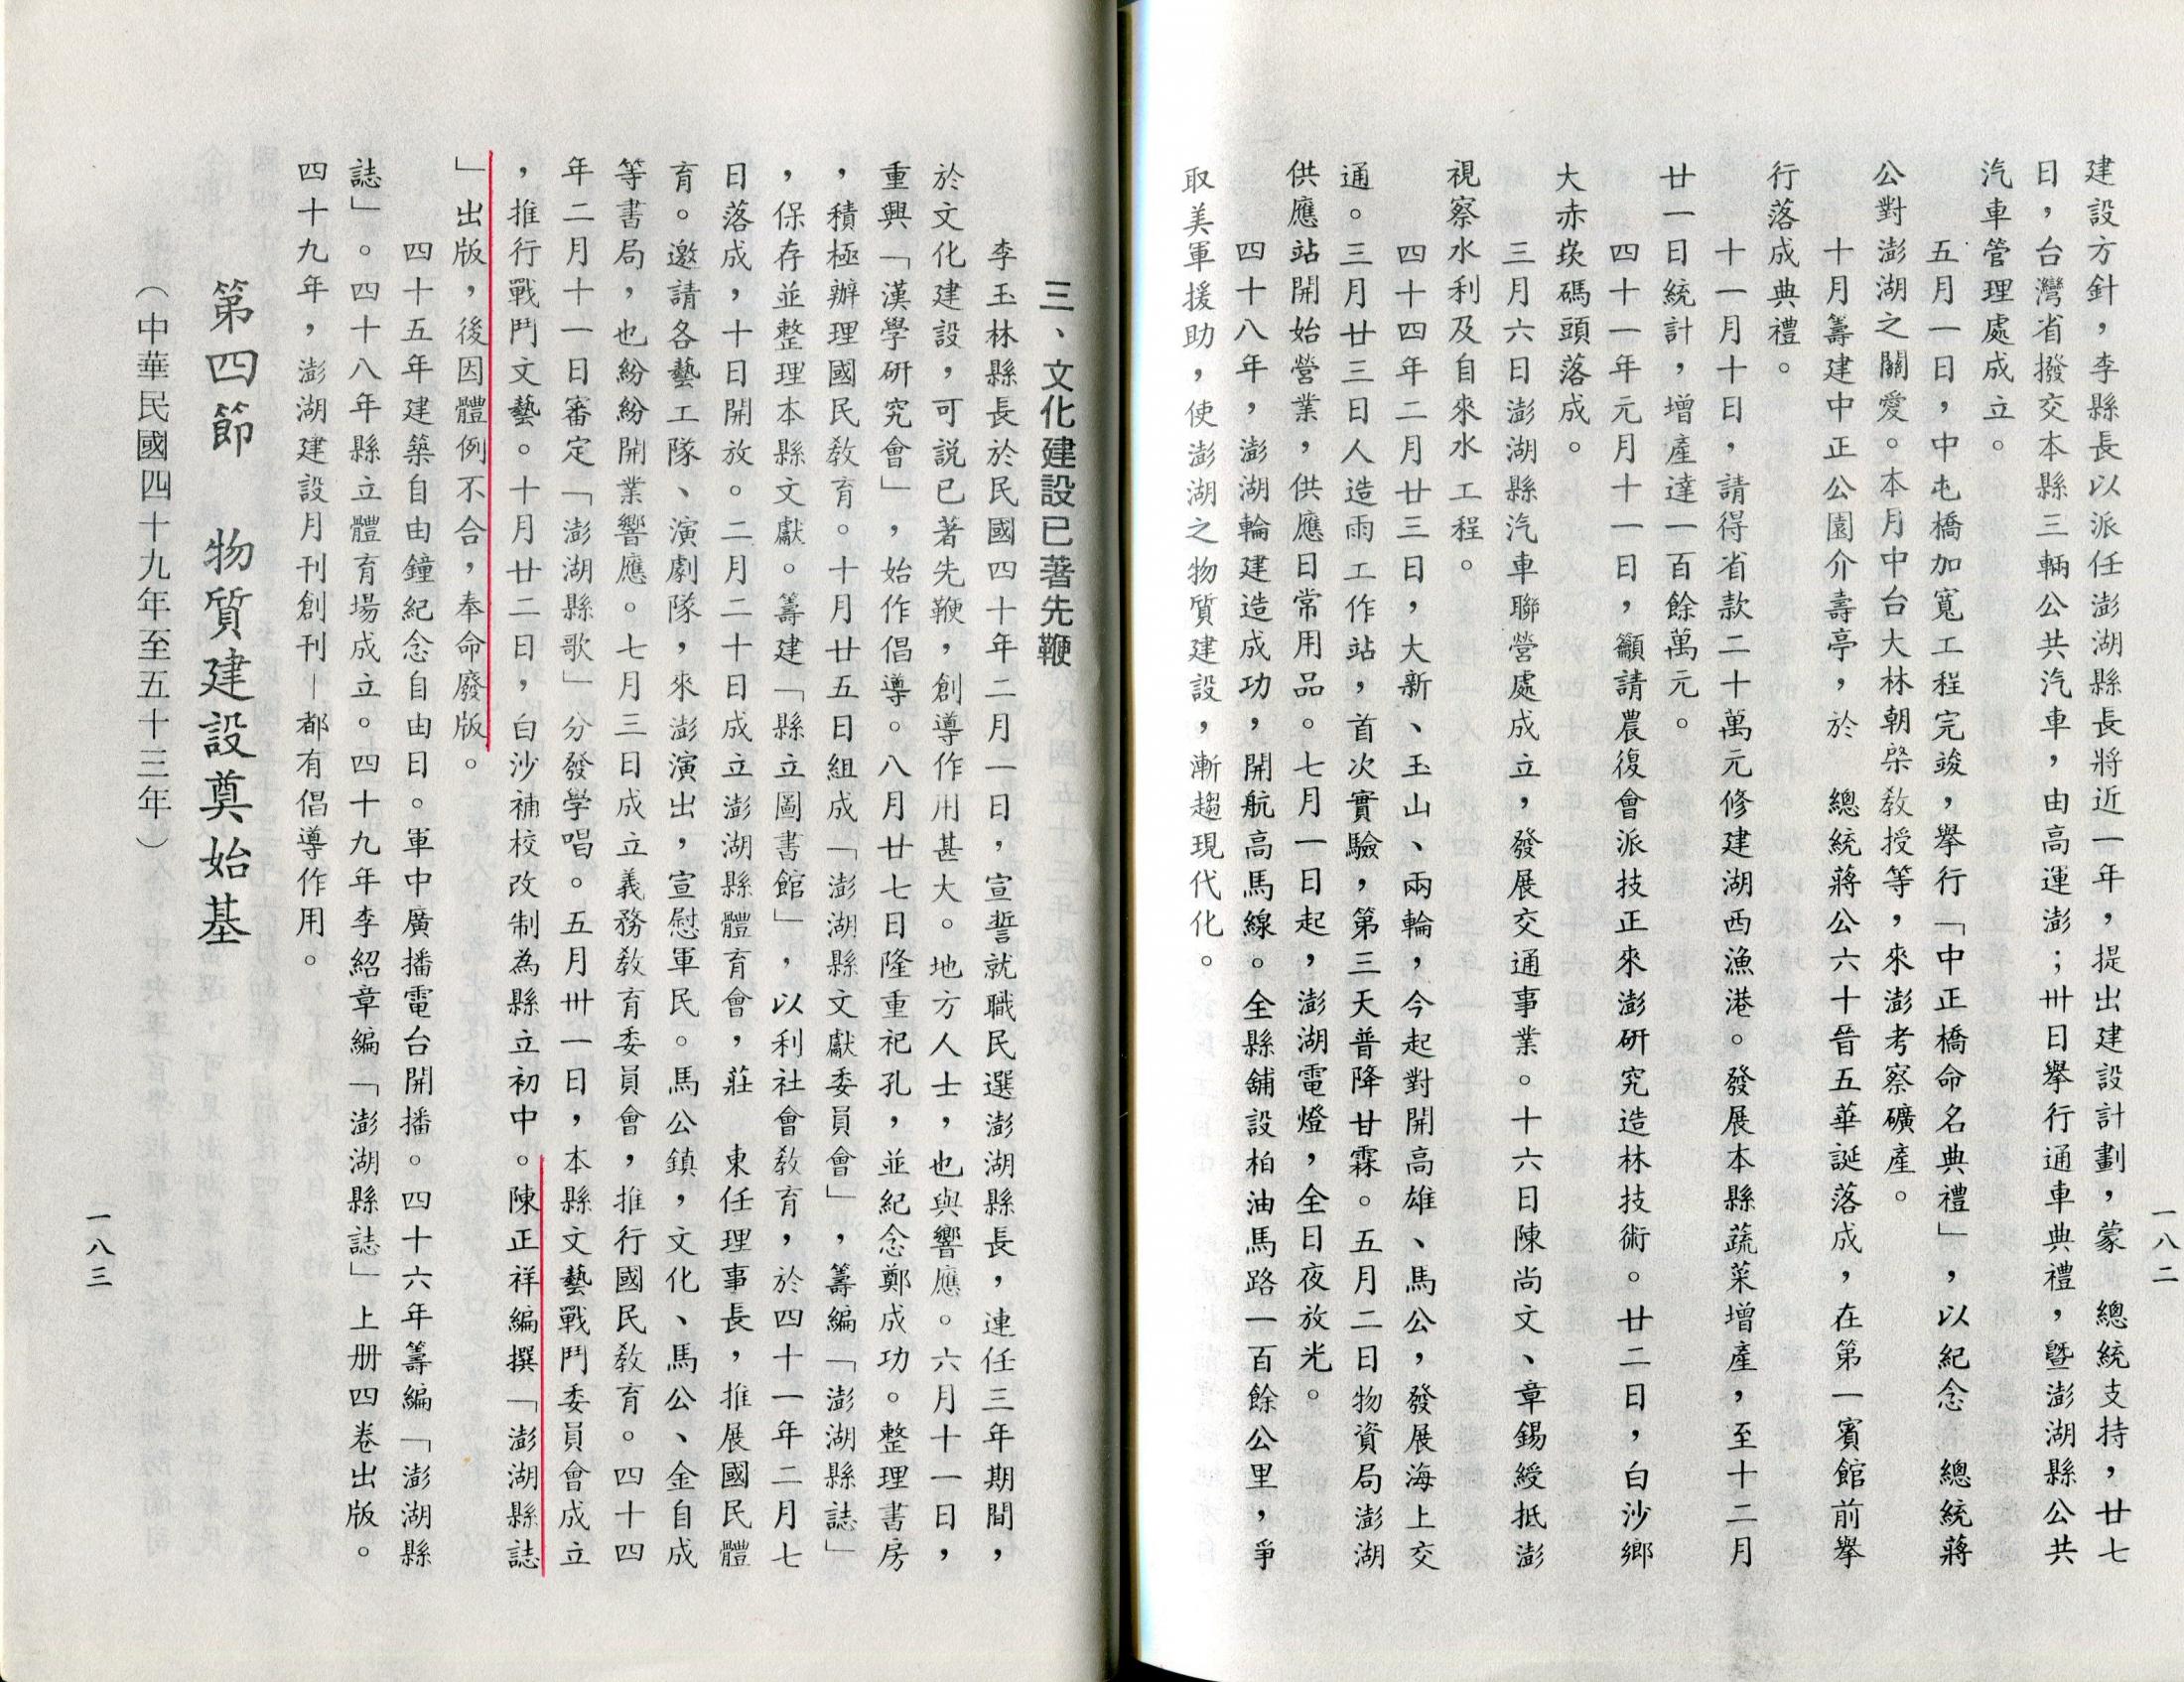 一八二
建設方針，李縣長以派任澎湖縣長將近一年，提出建設計劃，蒙　總統支持，廿七
日，台灣省撥交本縣三輛公共汽車，由高運澎；卅日舉行通車典禮，暨澎湖縣公共
汽車管理處成立。
五月一日，中屯橋加寬工程完竣，舉行「中正橋命名典禮」，以紀念　總統蔣
公對澎湖之關愛。本月中台大林朝棨教授等，來澎考察礦產。
十月籌建中正公園介壽亭，於　總統蔣公六十晉五華誕落成，在第一賓館前舉
行落成典禮。
十一月十日，請得省款二十萬元修建湖西漁港。發展本縣蔬菜增產，至十二月
廿一日統計，增產達一百餘萬元。
四十一年元月十一日，籲請農復會派技正來澎研究造林技術。廿二日，白沙鄉
大赤崁碼頭落成。
三月六日澎湖縣汽車聯營處成立，發展交通事業。十六日陳尚文、章錫綬抵澎
視察水利及自來水工程。
四十四年二月廿三日，大新、玉山、兩輪，今起對開高雄、馬公，發展海上交
通。三月廿三日人造雨工作站，首次實驗，第三天普降甘霖。五月二日物資局澎湖
供應站開始營業，供應日常用品。七月一日起，澎湖電燈，全日夜放光。
四十八年，澎湖輪建造成功，開航高馬線。全縣舖設柏油馬路一百餘公里，爭
取美軍援助，使澎湖之物質建設，漸趨現代化。
三、文化建設已著先鞭
李玉林縣長於民國四十年二月一日，宣誓就職民選澎湖縣長，連任三年期間，
於文化建設，可說已著先鞭，創導作用甚大。地方人士，也與響應。六月十一日，
重興「漢學研究會」，始作倡導。八月廿七日隆重祀孔，並紀念鄭成功。整理書房
，積極辦理國民教育。十月廿五日組成「澎湖縣文獻委員會」，籌編「澎湖縣誌」
，保存並整理本縣文獻。籌建「縣立圖書館」，以利社會教育，於四十一年二月七
日落成，十日開放。二月二十日成立澎湖縣體育會，莊　東任理事長，推展國民體
育。邀請各藝工隊、演劇隊，來澎演出，宣慰軍民。馬公鎮，文化、馬公、金自成
等書局，也紛紛開業響應。七月三日成立義務教育委員會，推行國民教育。四十四
年二月十一日審定「澎湖縣歌」分發學唱。五月卅一日，本縣文藝戰鬥委員會成立
，推行戰鬥文藝。十月廿二日，白沙補校改制為縣立初中。陳正祥編撰「澎湖縣誌
」出版，後因體例不合，奉命廢版。
四十五年建築自由鐘紀念自由日。軍中廣播電台開播。四十六年籌編「澎湖縣
誌」。四十八年縣立體育場成立。四十九年李紹章編「澎湖縣誌」上册四卷出版。
四十九年，澎湖建設月刊創刊－都有倡導作用。
第四節　物質建設奠始基
（中華民國四十九年至五十三年）
一八三